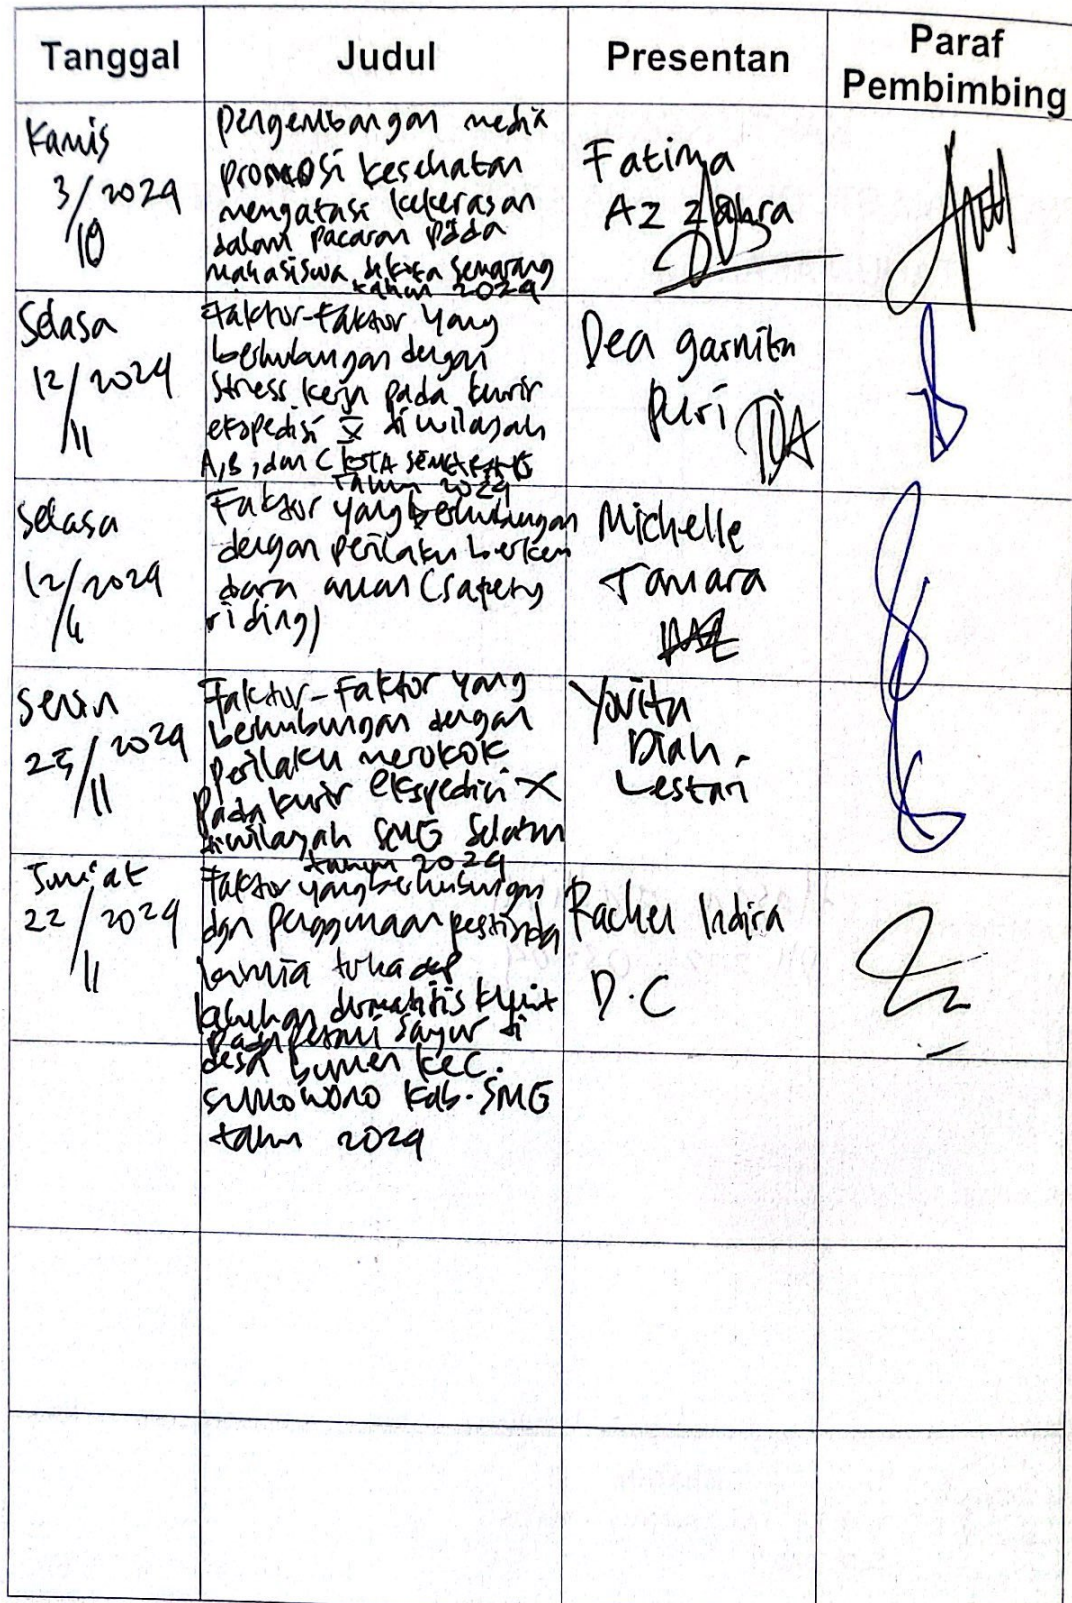 Tanggal Judul Presentan Paraf Pembimbing
Kamis
3/10 2024
pengembangan media
promosi kesehatan
mengatasi kekerasan
dalam pacaran pada
mahasiswa di kota Semarang
tahun 2024
Fatima
Az Zahra
Selasa
12/11 2024
Faktor-Faktor yang
berhubungan dengan
Stress kerja pada kurir
ekspedisi X di wilayah
A, B, dan C KOTA SEMARANG
Tahun 2024
Dea garnita
puri
selasa
12/11 2024
Faktor yang berhubungan
dengan perilaku berken
dara aman (safety
riding)
Michelle
Tamara
Senin
25/11 2024
Faktor-Faktor yang
berhubungan dengan
perilaku merokok
pada kurir ekspedisi X
di wilayah SMG Selatan
tahun 2024
Yovita
Diah
Lestari
Jum'at
22/11 2024
Faktor yang berhubungan
dgn penggunaan pestisida
kimia terhadap
keluhan dermatitis
pada petani sayur di
desa bumen kec.
sumowono kab. SMG
tahun 2024
Rachel Indira
D.C